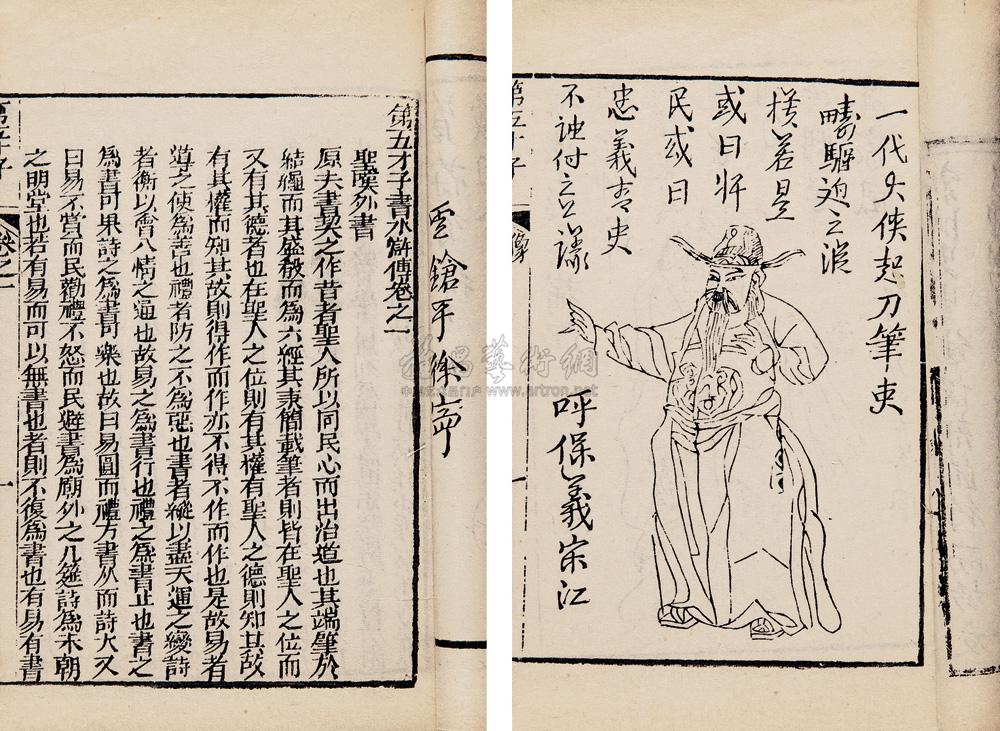 金鎗手徐寧
第五才子書水滸傳卷之一
聖嘆外書
原夫書契之作昔者聖人所以同民心而出治道也其端肇於
結繩而其盛殽而為六經其秉簡載筆者則皆在聖人之位而
又有其德者也在聖人之位則有其權有聖人之德則知其故
有其權而知其故則得作而作亦不得不作而作也是故易者
導之使為善也禮者防之不為惡也書者縱以盡天運之變詩
者衡以會八情之通也故易之為書行也禮之為書止也書之
為書可果詩之為書可樂也故曰易圓而禮方書久而詩大又
曰易不賞而民勸禮不怒而民避書為廟外之几筵詩為未朝
之明堂也若有易而可以無書也者則不復為書也有易有書
第五才子
卷之一
一
一代大俠起刀筆吏
疇驅迫之潰
橫若是
或曰奸
民或曰
忠義青史
不誣付之公議
呼保義宋江
第五才子
像
雅昌藝術網
artron.net